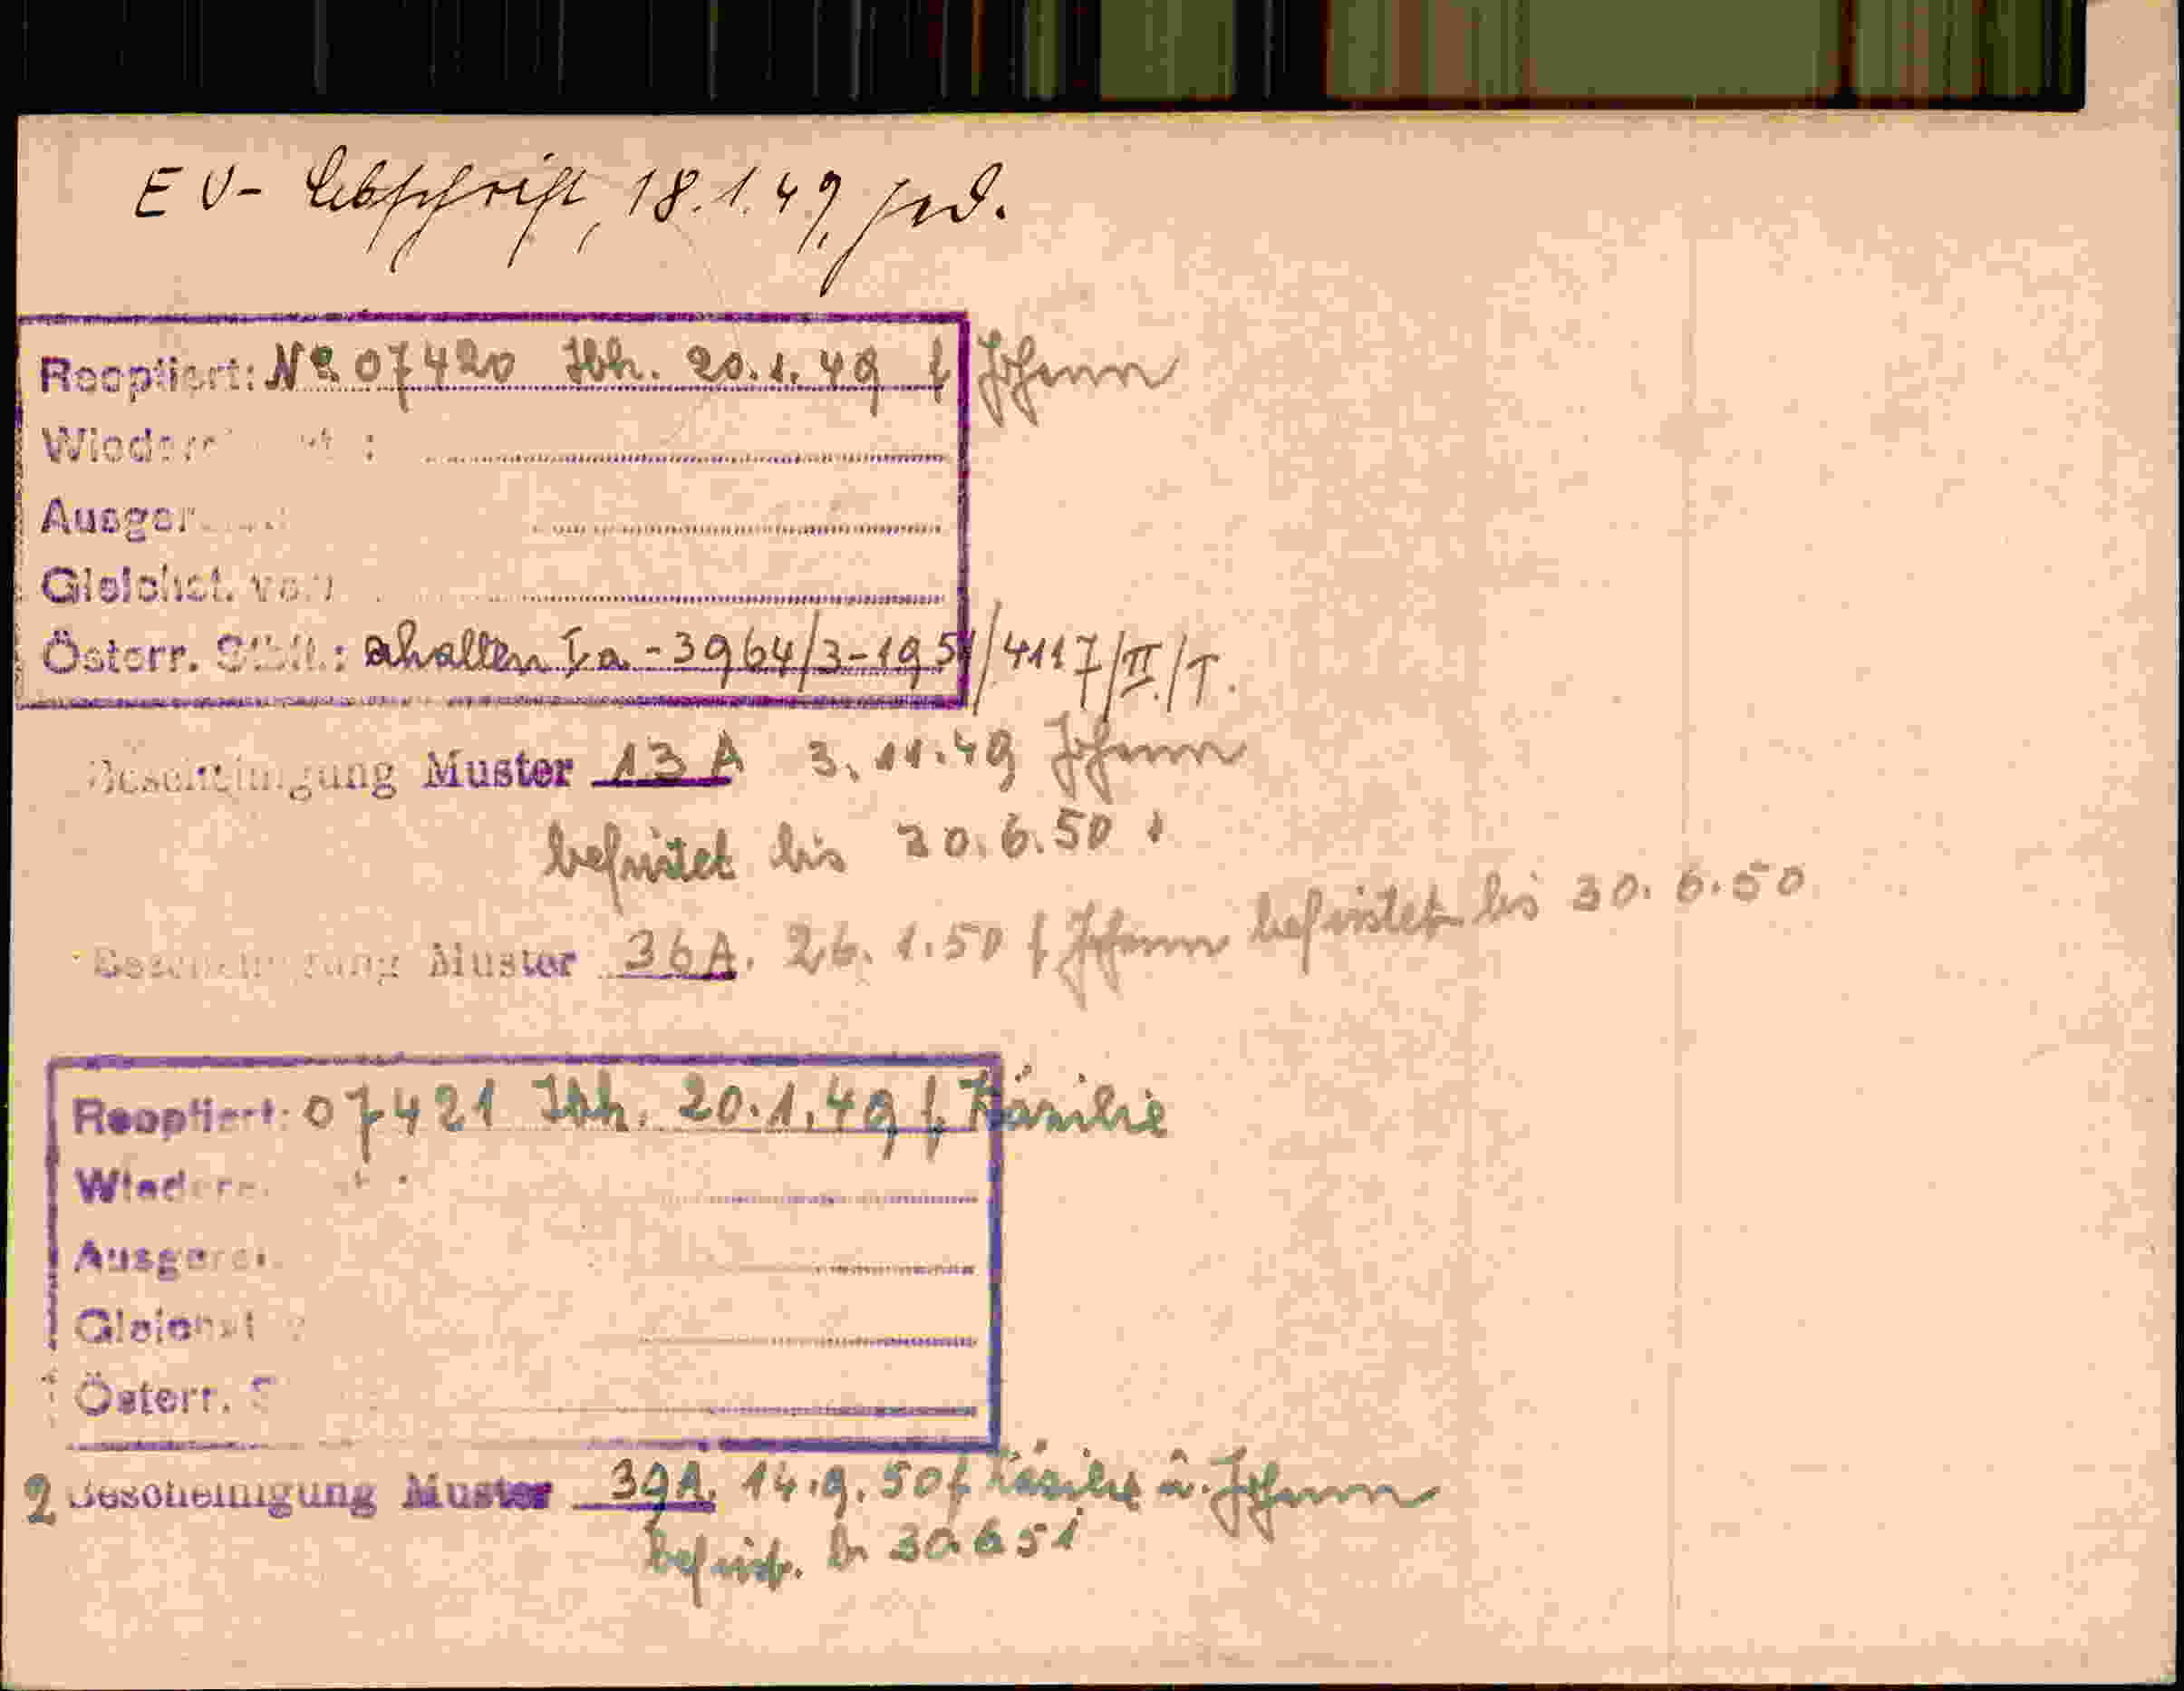 EV- Abschrift, 18.1.49.
Reoptiert: No 07420 Ibk. 20.1.49 f Johann
Wieder
Ausger
Gleichst. von
Österr. Stbü.: erhalten Ia-3964/3-1951/4117/II/T.
Bescheinigung Muster 13 A 3.11.49 Johann
befristet bis 30.6.50
Bescheinigung Muster 36A. 26.1.50 f Johann befristet bis 30.6.50
Reoptiert: 07421 Ibk. 20.1.49 f. Käsilie
Wieder
Ausger
Gleichst
Österr.
2 Bescheinigung Muster 39A. 14.9.50 f Käsilie u. Johann
befrist. b 30.6 51